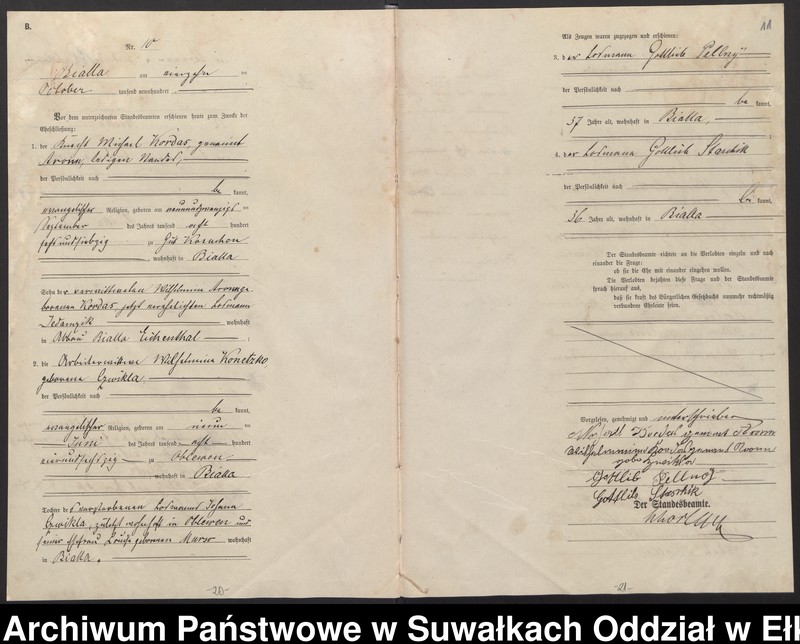 B.
Nr. 10
Bialla am vierzehn ten
October tausend neunhundert
Vor dem unterzeichneten Standesbeamten erschienen heute zum Zwecke der
Eheschließung:
1. der Knecht Michael Kordas, genannt
Aronn, ledigen Standes,
der Persönlichkeit nach
be kannt,
evangelischer Religion, geboren am neunundzwanzigsten
September des Jahres tausend acht hundert
sechsundsiebzig zu Gut
, wohnhaft in Bialla
Sohn der verwittweten Wilhelmine Aronn ge-
borenen Kordas jetzt verehelichten Losmann
Jedamzik wohnhaft
in Abbau Bialla Eichenthal
2. die Arbeiterwittwe Wilhelmine Konetzko,
geborene Czwikla
der Persönlichkeit nach
be kannt,
evangelischer Religion, geboren am neun ten
Juni des Jahres tausend acht hundert
vierundsechszig zu Oblewen
, wohnhaft in Bialla
Tochter des verstorbenen Losmanns Johann
Czwikla, zuletzt wohnhaft in Oblewen und
seiner Ehefrau Louise geborenen wohnhaft
in Bialla.
-20-
11
Als Zeugen waren zugezogen und erschienen:
3. der Losmann Gottlieb Pellny
der Persönlichkeit nach
be kannt,
37 Jahre alt, wohnhaft in Bialla,
4. der Losmann Gottlieb Staschik
der Persönlichkeit nach
be kannt,
36 Jahre alt, wohnhaft in Bialla
Der Standesbeamte richtete an die Verlobten einzeln und nach
einander die Frage:
ob sie die Ehe mit einander eingehen wollen.
Die Verlobten bejahten diese Frage und der Standesbeamte
sprach hierauf aus,
daß sie kraft des Bürgerlichen Gesetzbuchs nunmehr rechtmäßig
verbundene Eheleute seien.
Vorgelesen, genehmigt und unterschrieben
Kordas genannt Aronn
Wilhelmine Kordas genannt Aronn
geb Zwikla
Gottlieb Pellny
Gottlieb Staschik
Der Standesbeamte.
-21-
Archiwum Państwowe w Suwałkach Oddział w Eł